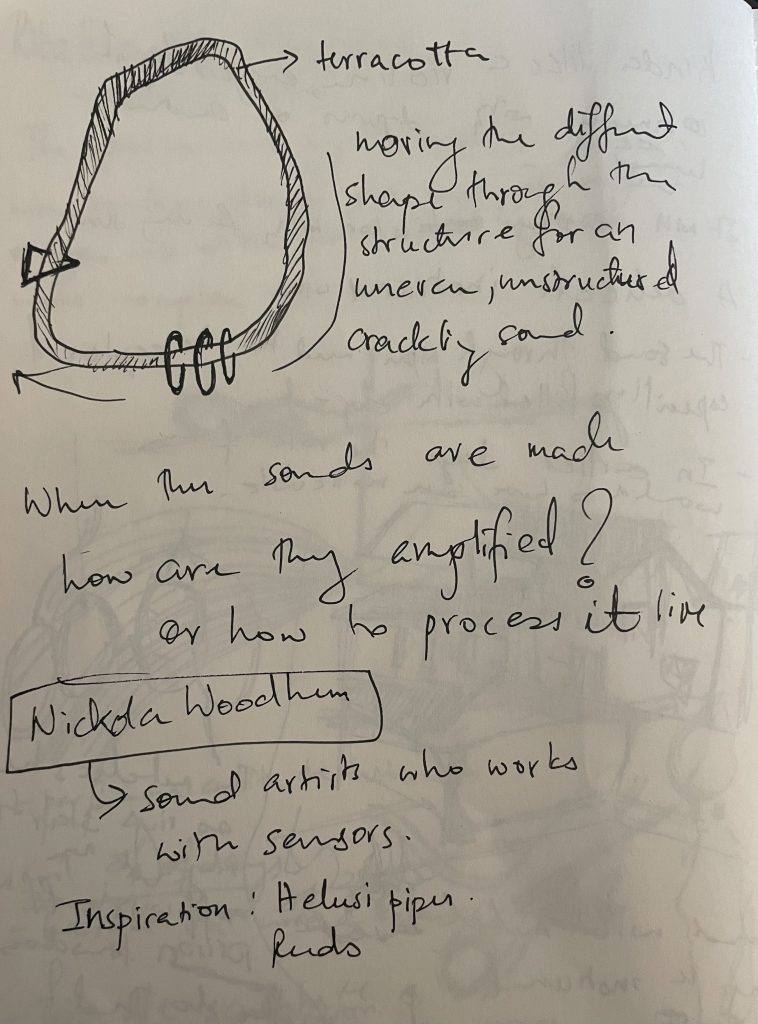 terracotta
moving the diffent
shape through the
structure for an
uneven, unstructured
crackly sound.
When the sounds are made
how are they amplified?
or how to process it live
Nickola Woodham
sound artists who works
with sensors.
Inspiration: Helusi pipes.
Reeds